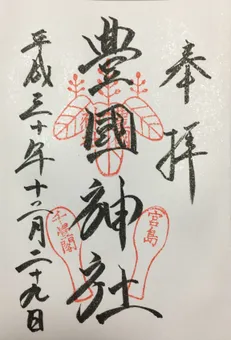 奉拝
宮島
豊國神社
千畳閣
平成三十年十二月二十九日